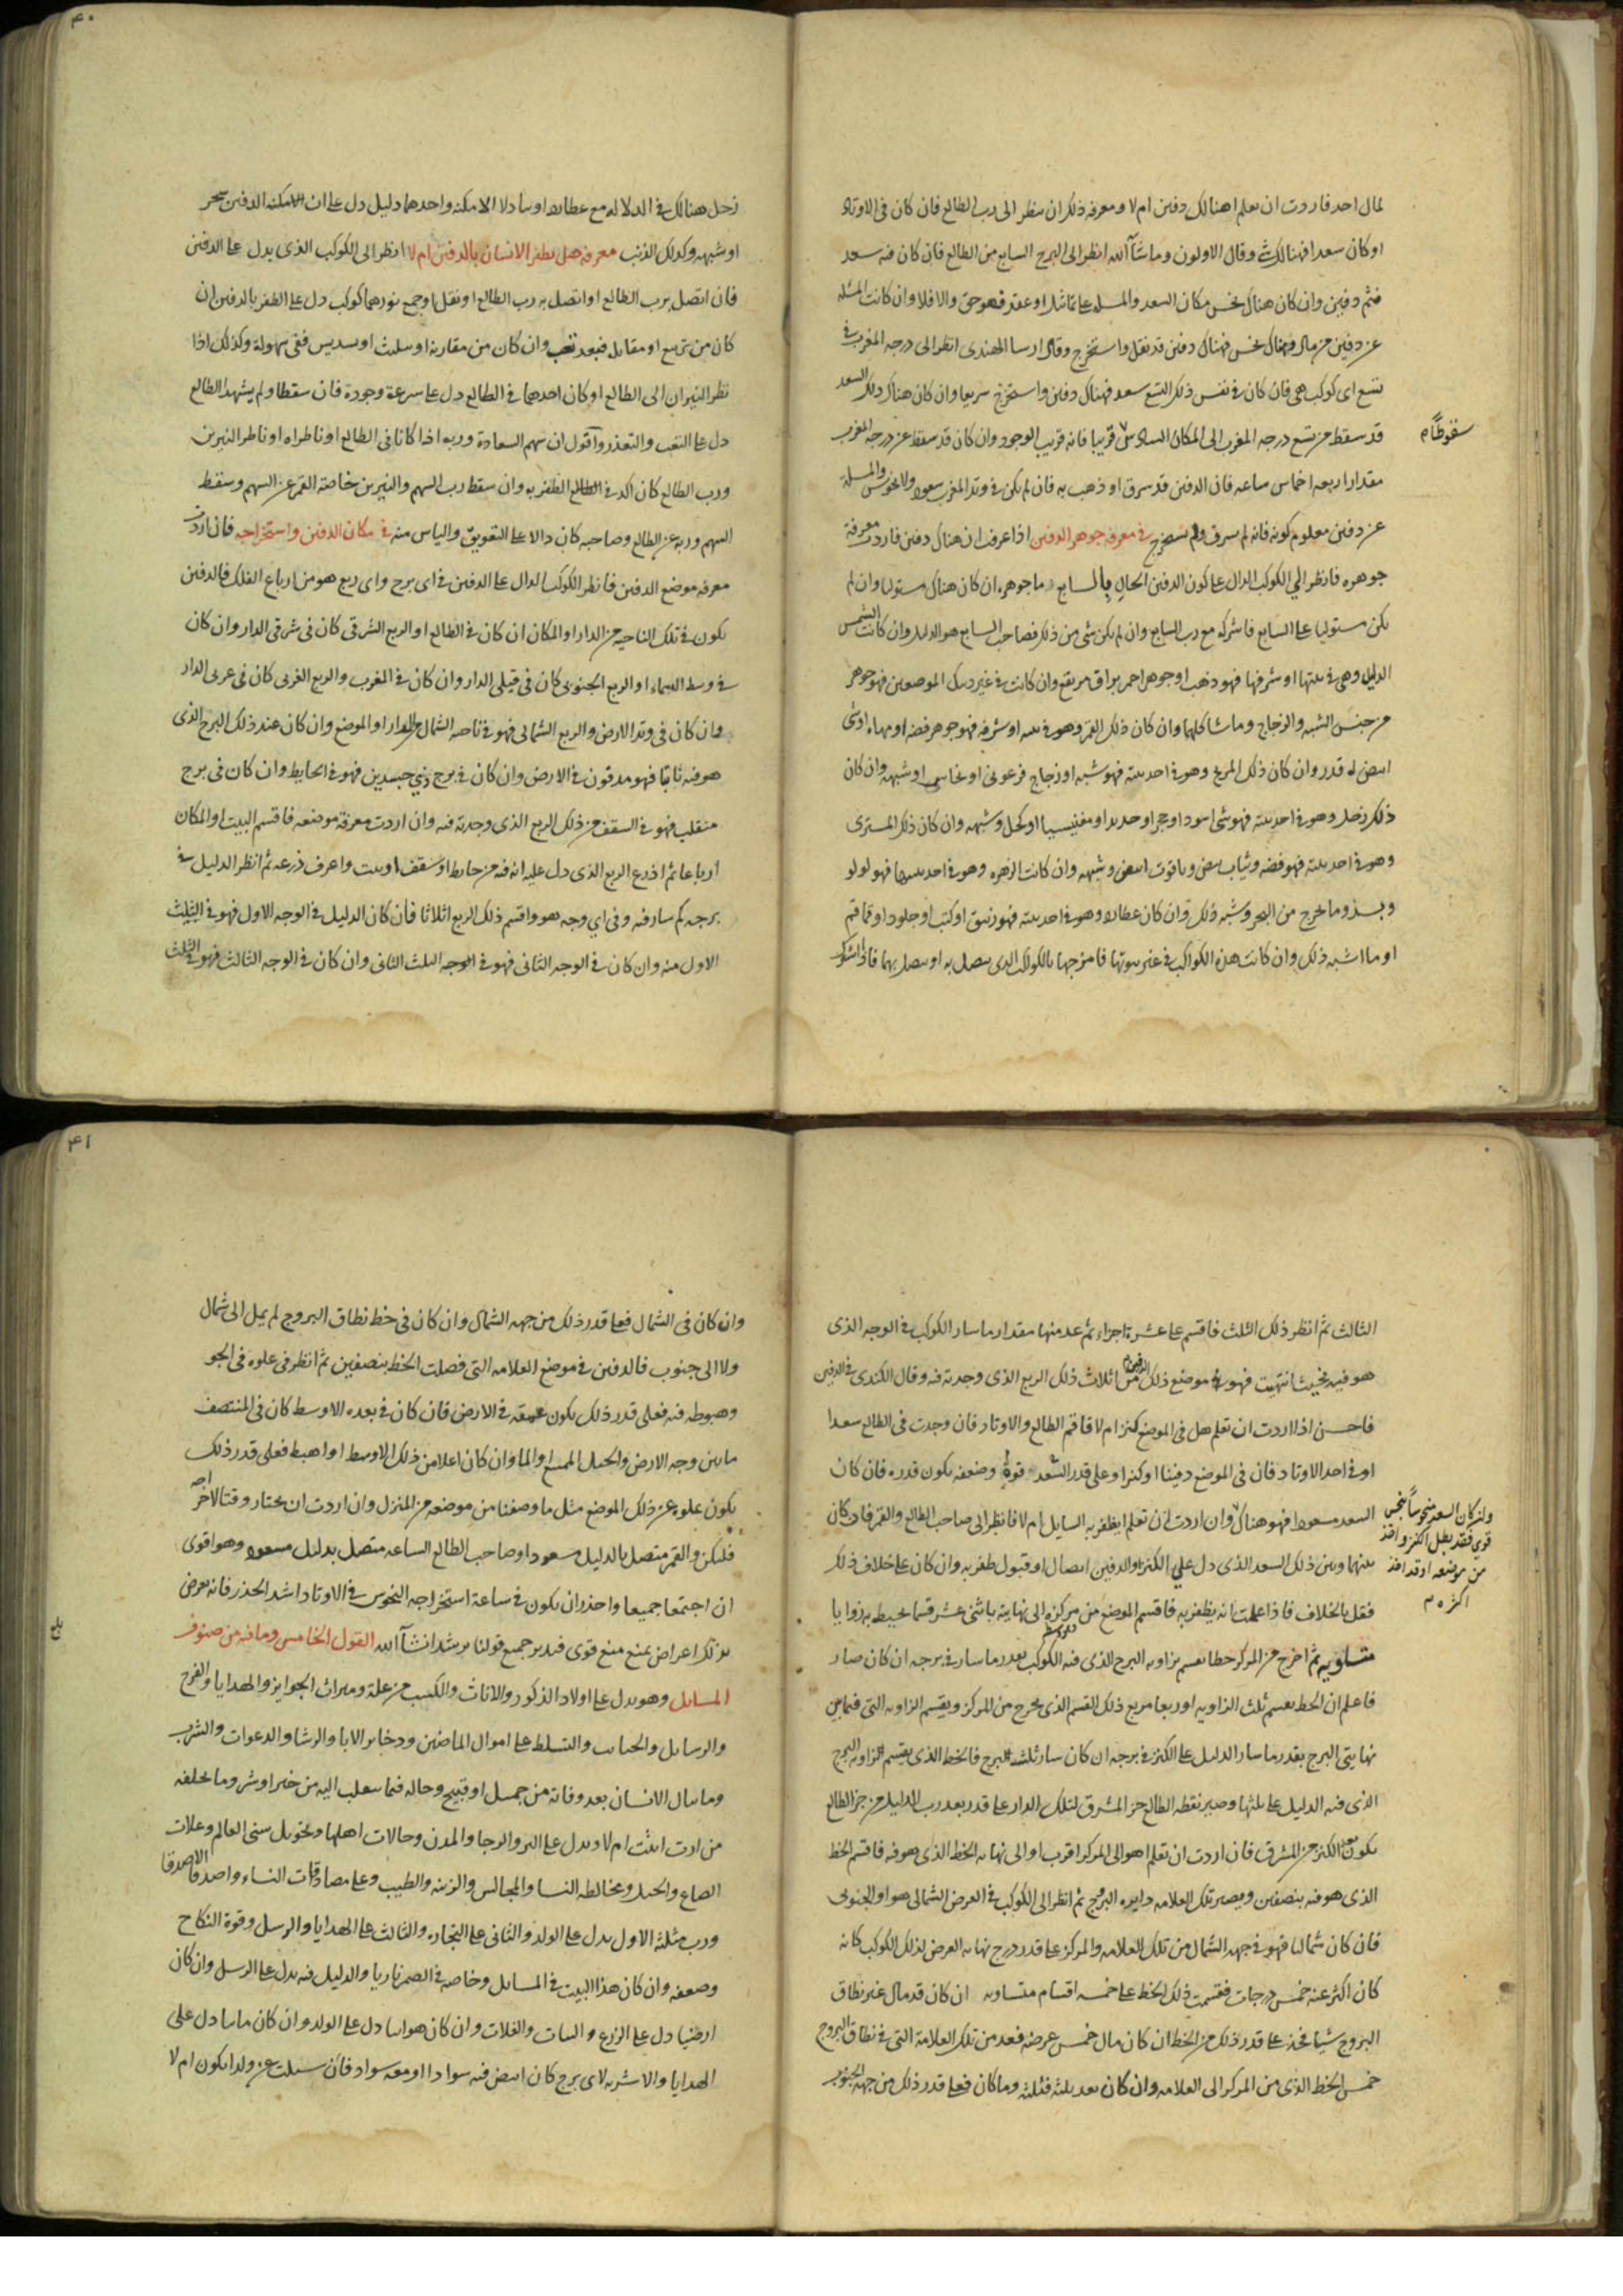 لمال احد فاردت ان تعلم اهنالك دفين ام لا ومعرفة ذلك ان تنظر الى رب الطالع فان كان في الاوتاد
او كان سعدا فهنالك شى وقال الاولون وما شآ الله انظر الى البرج السابع من الطالع فان كان فيه سعد
فثم دفين وان كان هنالك نحس مكان السعد والمسله على تماثل او عقد فهو حق والا فلا وان كانت المسئلة
عن دفين من مال وهناك نحس فهناك دفين قد نقل واستخرج وقال ارسا الهندى انظر الى درجة المغرب في
تسع اى كوكب هي فان كان في نفس ذلك التسع سعد فهناك دفين واستخرج سريعا وان كان هناك ذلك السعد
قد سقط من تسع درجه المغرب الى المكان السادس قريبا فانه قريب الوجود وان كان قد سقط عن درجه المغرب
سقوطاً م
مقدار اربعه اخماس ساعه فان الدفين قد سرق او ذهب به فان لم يكن في وتد المغرب سعود ولا نحوس والمسلة
عن دفين معلوم كونه فانه لم يسرق ولم يستخرج في معرفة جوهر الدفين اذا عرفت ان هناك دفين فاردت معرفة
جوهره فانظر الي الكوكب الدال على كون الدفين الحال بالسابع ما جوهره ان كان هناك مستوليا وان لم
يكن مستوليا على السابع فاشركه مع رب السابع وان لم يكن شى من ذلك فصاحب السابع هو الدليل وان كانت الشمس
الدليل وهي في بيتها او شرفها فهو ذهب او جوهر احمر براق مرتفع وان كانت في غير ذينك الموضعين فهو جوهر
من جنس الشبه والزجاج وما شاكلهما وان كان ذلك القمر وهو في بيته او شرفه فهو جوهر فضه او مهاه او شى
ابيض له قدر وان كان ذلك المريخ وهو في احد بيته فهو شبه او زجاج فرعونى او نحاس او شبهه وان كان
ذلك زحل وهو في احد بيته فهو شى اسود او حجر او حديد او مغنيسيا او كحل وشبهه وان كان ذلك المسترى
وهو في احد بيته فهو فضه وثياب بيض وياقوت ابيض وشبهه وان كانت الزهره وهو في احد بيتها فهو لولو
وبسذ وما يخرج من البحر وشبه ذلك وان كان عطارد وهو في احد بيته فهو زيبق او كتب او جلود او قماقم
او ما اشبه ذلك وان كانت هذه الكواكب في غير بيوتها فامزجها بالكواكب الذى يتصل به او يتصل بهما فاذا اشرك
زحل هنالك في الدلالة مع عطارد او بها دلا الامكنه واحدهما دليل دل على ان الامكنه الدفين سحر
او شبهه وكذلك الذنب معرفه هل يظفر الانسان بالدفين ام لا انظر الى الكوكب الذى يدل على الدفين
فان اتصل برب الطالع او اتصل به رب الطالع او نقل او جمع نورهما كوكب دل على الظفر بالدفين ان
كان من تربيع او مقابله فبعد تعب وان كان من مقارنة او تثليث او تسديس ففى سهولة وكذلك اذا
نظر النيران الى الطالع او كان احدهما في الطالع دل على سرعة وجودة فان سقطا ولم يشهدا الطالع
دل على التعب والتعذر وآقول ان سهم السعادة وربه اذا كانا فى الطالع او ناظراه او ناظر النيرين
ورب الطالع كان اكد في الظفر به وان سقط رب السهم والنيرين خاصة القمر عن السهم وسقط
السهم وربه عن الطالع وصاحبه كان دالا على التعويق والياس منه في مكان الدفين واستخراجه فان اردت
معرفه موضع الدفين فانظر الكوكب الدال على الدفين في اى برج واى ربع هو من ارباع الفلك فالدفين
يكون في تلك الناحيه من الدار او المكان ان كان في الطالع او الربع الشرقى كان في شرقى الدار وان كان
في وسط السماء او الربع الجنوبى كان في قبلى الدار وان كان في المغرب والربع الغربى كان في غربى الدار
وان كان في وتد الارض والربع الشمالى فهو في ناحيه الشمال من الدار او الموضع وان كان عند ذلك البرج الذى
هو فيه ثابتا فهو مدفون في الارض وان كان في برج ذي جسدين فهو في الحايط وان كان في برج
منقلب فهو في السقف من ذلك الربع الذى وجدته فيه وان اردت معرفة موضعه فاقسم البيت او المكان
ارباعا ثم اذرع الربع الذى دل عليه انه فيه من حايط او سقف او بيت واعرف ذرعه ثم انظر الدليل في
برجه كم سار فيه وفي اي وجه هو واقسم ذلك الربع اثلاثا فأن كان الدليل في الوجه الاول فهو في الثلث
الاول منه وان كان في الوجه الثانى فهو في الثلث الثانى وان كان في الوجه الثالث فهو في الثلث
الثالث ثم انظر ذلك الثلث فاقسم على عشرة اجزاء ثم عد منها مقدار ما سار الكوكب في الوجه الذى
هو فيه فحيث انتهيت فهو في موضع ذلك الدفين من اثلاث ذلك الربع الذى وجدته فيه وقال الكندى في الدفين
فاحسن اذا اردت ان تعلم هل في الموضع كنز ام لا فاقم الطالع والاوتاد فان وجدت في الطالع سعدا
او في احد الاوتاد فان في الموضع دفينا او كنزا وعلى قدر السعد قوة وضعفه يكون قدره فان كان
السعد مسعودا فهو هناك وان اردت ان تعلم ايظفر به السايل ام لا فانظر الى صاحب الطالع والقمر فان كان
وان كان السعد منحوساً بنحس
قوي فقد بطل الكنز واخذ
من موضعه او قد اخذ
اكثره م
بينهما وبين ذلك السعد الذى دل علي الكنز او الدفين اتصال او قبول ظفر به وان كان على خلاف ذلك
فقل بالخلاف فاذا علمت انه يظفر به فاقسم الموضع من مركزه الى نهايته باثنى عشر قسما يحيط به زوايا
متساويه ثم اخرج من المركز خطا يقسم بزاويه البرج الذى فيه الكوكب بقدر ما سار في برجه ان كان صار
فاعلم ان الخط يقسم ثلث الزاويه او ربعا فربع ذلك القسم الذى يخرج من المركز ويقسم الزاويه التى فيما بين
نهايتى البرج بقدر ما سار الدليل على الكنز في برجه ان كان سار ثلث البرج فالخط الذى يقسم الزاويه البرج
الذى فيه الدليل على ثلثها وصير نقطه الطالع حز المشرق لتلك الدار على قدر بعد رب الدليل من جز الطالع
يكون بعد الكنز من المشرق فان اردت ان تعلم اهو الى المركز اقرب او الى نهايه الخط الذى هو فيه فاقسم الخط
الذى هو فيه بنصفين ويصير تلك العلامه دايره البروج ثم انظر الى الكوكب في العرض الشمالى هو او الجنوبى
فان كان شماليا فهو في جهه الشمال من تلك العلامه والمركز على قدر درج نهايه العرض لذلك الكوكب كانه
كان اكثر عنه خمس درجات فقسمت ذلك الخط على خمسه اقسام متساويه ان كان قد مال عن نطاق
البروج شيا فخذ على قدر ذلك من الخط ان كان مال خمس عرضه فعد من تلك العلامة التى في نطاق البروج
خمس الخط الذى من المركز الى العلامه وان كان بعد ثلثه فثلثه وما كان فعلى قدر ذلك من جهه الجنوب
وان كان في الشمال فعلى قدر ذلك من جهه الشمال وان كان في خط نطاق البروج لم يمل الى شمال
ولا الى جنوب فالدفين في موضع العلامه التى فصلت الخط بنصفين ثم انظر في علوه في الجو
وهبوطه فيه فعلى قدر ذلك يكون عمقه في الارض فان كان في بعده الاوسط كان في المنتصف
ما بين وجه الارض والجبل والماوان كان اعلا من ذلك الاوسط او اهبط فعلى قدر ذلك
يكون علوه عن ذلك الموضع مثل ما وصفنا من موضعه من المنزل وان اردت ان تختار وقتا لاخراجه
فليكن والقمر متصل بالدليل مسعودا وصاحب الطالع الساعه متصل بدليل مسعود وهو اقوى
ان اجتمعا جميعا واحذر ان يكون في ساعة استخراجه النحوس في الاوتاد اشد الحذر فانه يعرض
بذلك اعراض يمنع منع قوى فتدبر جميع قولنا ترشد انشآ الله القول الخامس وما فيه من صنوف
بلغ
المسايل وهو يدل على اولاد الذكور والاناث والكسب من غلة وميراث الجوايز والهدايا والفرح
والرسايل والحبايب والتسلط على اموال الماضين وذخاير الابا والرشا والدعوات والشرب
وما ينال الانسان بعد وفاته من جميل او قبيح وحاله فيما ينقلب اليه من خير او شر وما يخلفه
من ارث ابنت ام لا ويدل على البر والرجا والمدن وحالات اهلها وتحويل سنى العالم وعلات
الضياع والحيل ومخالطه النسا والمجالس والزينه والطيب وعلى مصادقات النساء واصدقا الاصدقا
ورب مثلثه الاول يدل على الولد والثانى على التجاره والثالث على الهدايا والرسل وقوة النكاح
وضعفه وان كان هذا البيت في المسايل وخاصه في الضمير ناريا والدليل فيه يدل على الرسل وان كان
ارضيا دل على الزرع والنبات والغلات وان كان هوايا دل على الولد وان كان مايا دل على
الهدايا والاشربه لاى برج كان ابيض فيه سوادا او معه سواد فان سيلت عن ولد ايكون ام لا